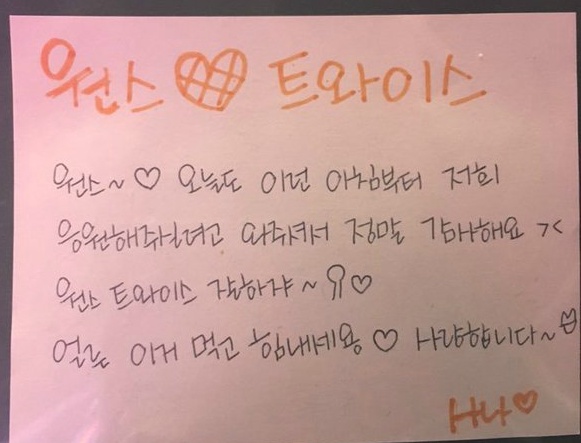 원스 ♡ 트와이스
원스~♡ 오늘도 이런 아침부터 저희
응원해주실려고 와주셔서 정말 감사해요 ><
원스 트와이스 잘하쟈~ ♡
얼른 이거 먹고 힘내세용 ♡ 사랑합니다~
나♡